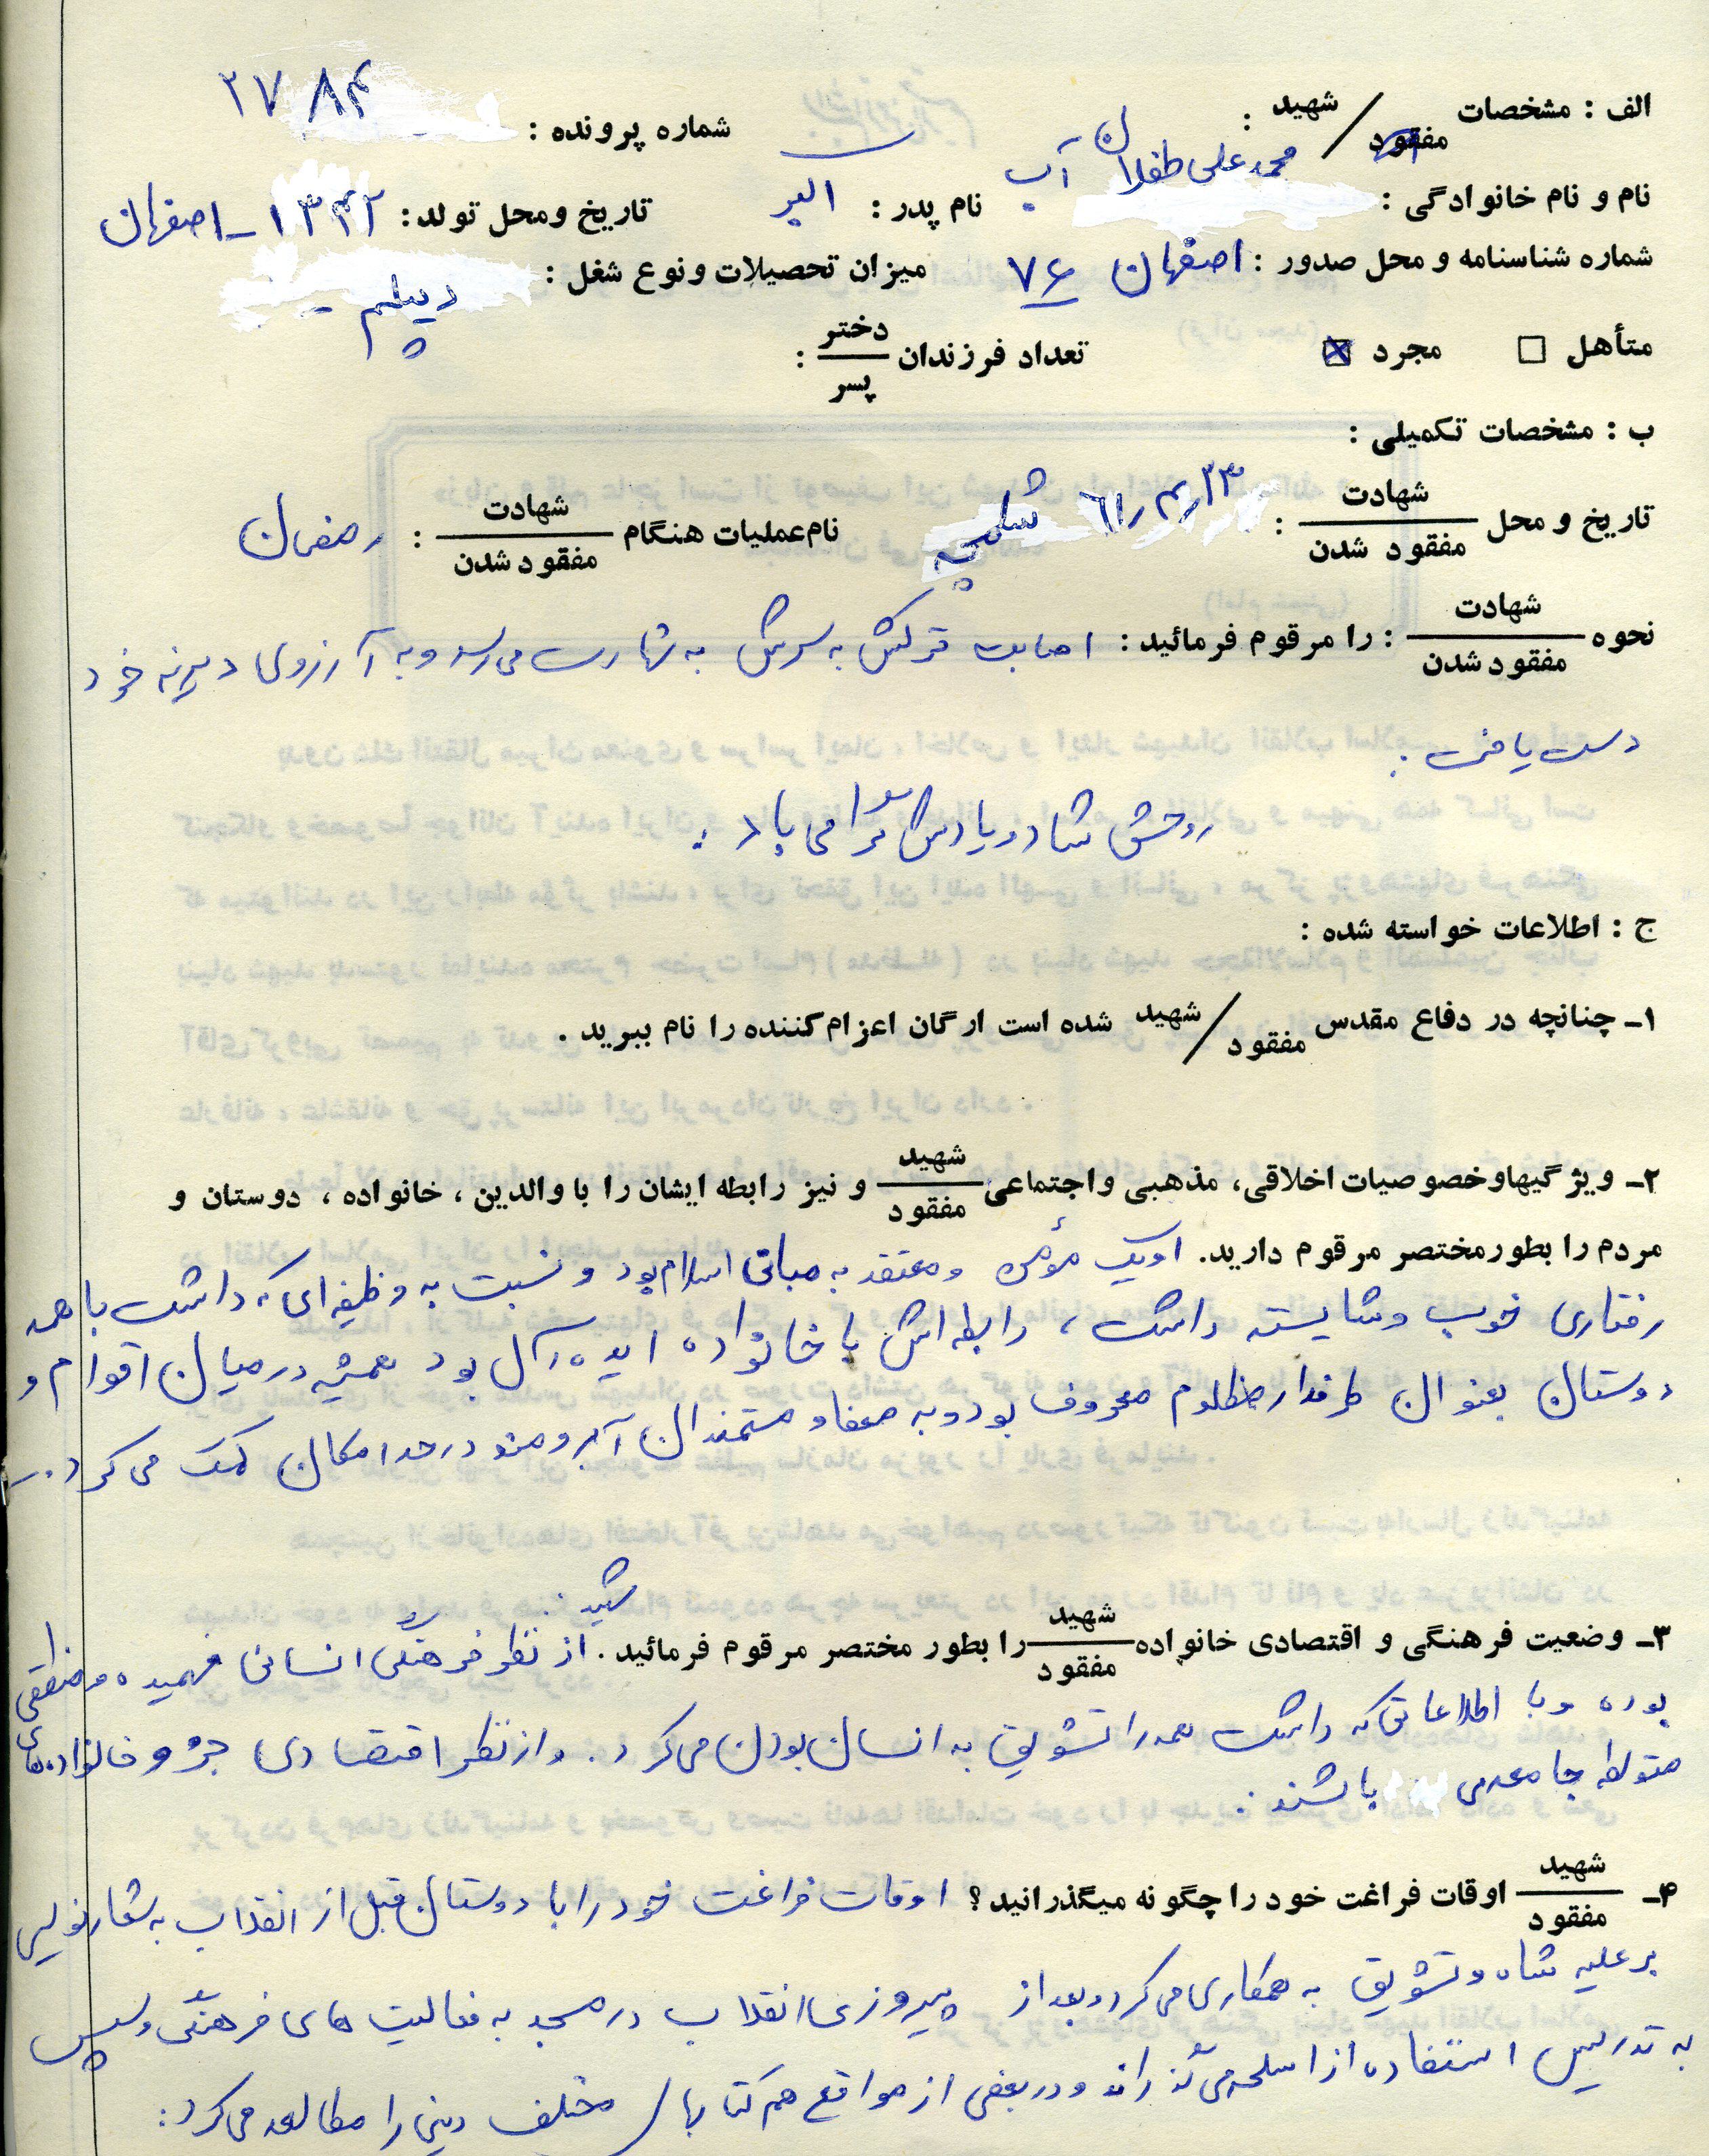 الف : مشخصات شهید / مفقود :
شماره پرونده : ۲۷۸۴
نام و نام خانوادگی : محمد علی طفلان آب نام پدر : اکبر تاریخ ومحل تولد : ۱۳۴۲ - اصفهان
شماره شناسنامه و محل صدور : اصفهان ۷۶ میزان تحصیلات ونوع شغل : دیپلم -
متأهل □ مجرد ☒ تعداد فرزندان دختر / پسر :
ب : مشخصات تکمیلی :
تاریخ و محل شهادت / مفقود شدن : ۶۱٫۴٫۲۳ شلمچه نام عملیات هنگام شهادت / مفقود شدن : رمضان
نحوه شهادت / مفقود شدن : را مرقوم فرمائید : اصابت ترکش به سرش به شهادت می رسد و به آرزوی دیرینه خود
دست یافت .
روحش شاد و یادش گرامی باد .
ج : اطلاعات خواسته شده :
۱ـ چنانچه در دفاع مقدس شهید / مفقود شده است ارگان اعزام کننده را نام ببرید .
۲ـ ویژگیها وخصوصیات اخلاقی، مذهبی واجتماعی شهید / مفقود و نیز رابطه ایشان را با والدین ، خانواده ، دوستان و
مردم را بطور مختصر مرقوم دارید. او یک مؤمن و معتقد به مبانی اسلام بود و نسبت به وظیفه ای که داشت با همه
رفتاری خوب و شایسته داشت ، رابطه اش با خانواده ایده آل بود همیشه در میان اقوام و
دوستان بعنوان طرفدار مظلوم معروف بود و به ضعفا و مستمندان آبرومند در حد امکان کمک می کرد .
۳ـ وضعیت فرهنگی و اقتصادی خانواده شهید / مفقود را بطور مختصر مرقوم فرمائید . شهید از نظر فرهنگی انسانی فهمیده و منطقی
بوده و با اطلاعاتی که داشت همه را تشویق به انسان بودن می کرد . و از نظر اقتصادی جزو خانواده های
متوسط جامعه می باشند .
۴ـ شهید / مفقود اوقات فراغت خود را چگونه میگذرانید ؟ اوقات فراغت خود را با دوستان قبل از انقلاب به شعار نویسی
بر علیه شاه و تشویق به همکاری می کرد و بعد از پیروزی انقلاب در مسجد به فعالیت های فرهنگی و سپس
به تدریس استفاده از اسلحه می گذراند و در بعضی از مواقع هم کتابهای مختلف دینی را مطالعه می کرد :